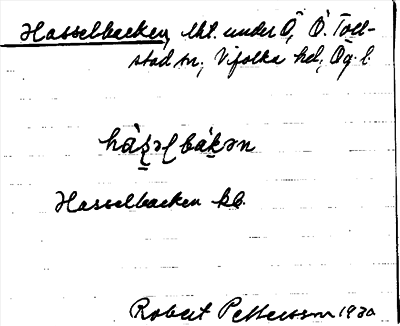 Hasselbacken, lht. under Ö, Ö. Toll-
stad sn, Vifolka hd, Ög. l.
hàs̲əlbák̲ən
Hasselbacken kb.
Robert Pettersson 1930